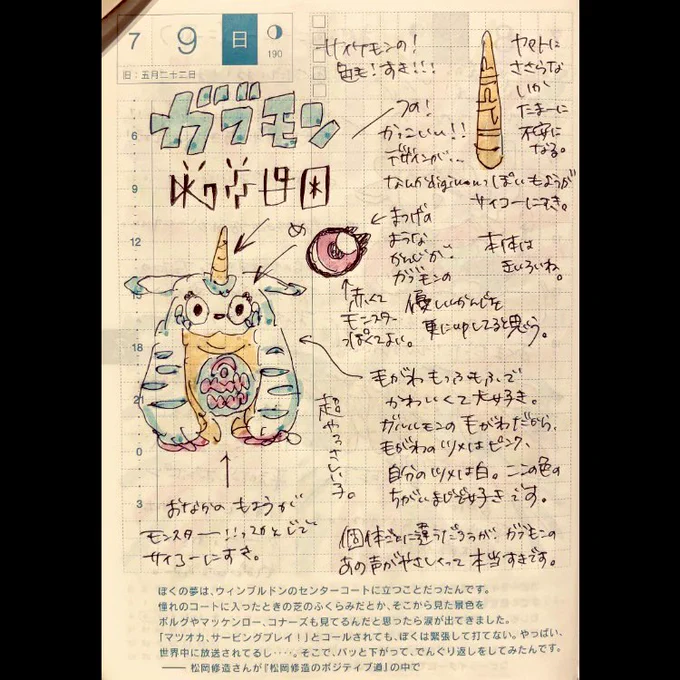 7 9 日
190
旧：五月二十二日
ガブモン
サイケモンの！
色も！すき！！！
つの！
かっこいい！！
デザインが…
なんかdigimonっぽいもようが
サイコーにすき。
ヤマトに
ささらな
いか
たまーに
不安に
なる。
め
まつげの
ような
かんじが、
ガブモンの
優しいかんじを
更にupしてると思う。
本体は
きいろいね。
赤くて
モンスター
っぽくてよい。
毛がわもっふもふで
かわいくて大好き。
ガルルモンの毛がわだから、
毛がわのツメはピンク、
自分のツメは白。ここの色の
ちがいまじで好きです。
超やさしい子。
おなかのもようが
モンスター！！ってかんじで
サイコーにすき。
個体ごとに違うだろうが、ガブモンの
あの声がやさしくって本当すきです。
6
9
12
15
18
21
0
3
ぼくの夢は、ウィンブルドンのセンターコートに立つことだったんです。
憧れのコートに入ったときの芝のふくらみだとか、そこから見た景色を
ボルグやマッケンロー、コナーズも見てるんだと思ったら涙が出てきました。
「マツオカ、サービングプレイ！」とコールされても、ぼくは緊張して打てない。やっぱい、
世界中に放送されてるし‥‥。そこで、パッと下がって、でんぐり返しをしてみたんです。
―― 松岡修造さんが『松岡修造のポジティブ道』の中で